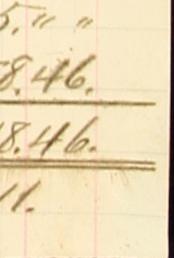 5. " "
8.46.
8.46.
11.